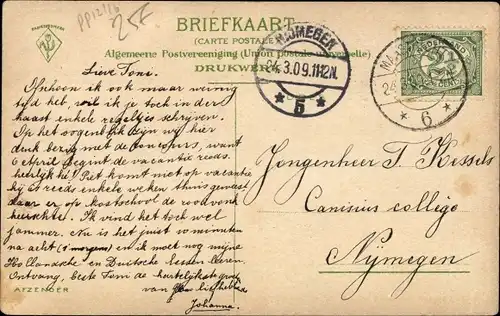 PP12/16
25f
BRIEFKAART
(CARTE POSTALE)
Algemeene Postvereeniging (Union postale universelle)
DRUKWERK
NIJMEGEN
24.3.09.11-12N.
* 5 *
24
* 6 *
NEDERLAND
Lieve Toni.
Ofschoon ik ook maar weinig
tijd heb, wil ik je toch in der
haast enkele regeltjes schrijven.
Op het oogenblik zijn wij hier
druk bezig met de concours, want
6 April begint de vacantie reeds.
heerlijk he! Piet komt niet op vacantie
hij is reeds enkele weken thuis geweest
daar er op kostschool de roodvonk
heerschte. Ik vind het toch wel
jammer. Nu is het juist 20 minuten
na acht (’s morgens) en ik moet nog mijne
Hollandsche en Duitsche lessen leeren.
Ontvang, beste Toni de hartelijkste groeten
van je liefhebbende
Johanna.
AFZENDER
Jongenheer T. Kessels
Canisius collegie
Nijmegen